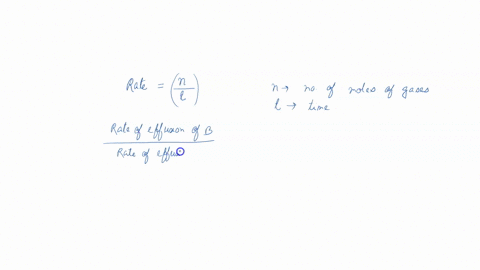 Rate = (n/t)
n → no of moles of gases
t → time
Rate of effusion of B
Rate of effus